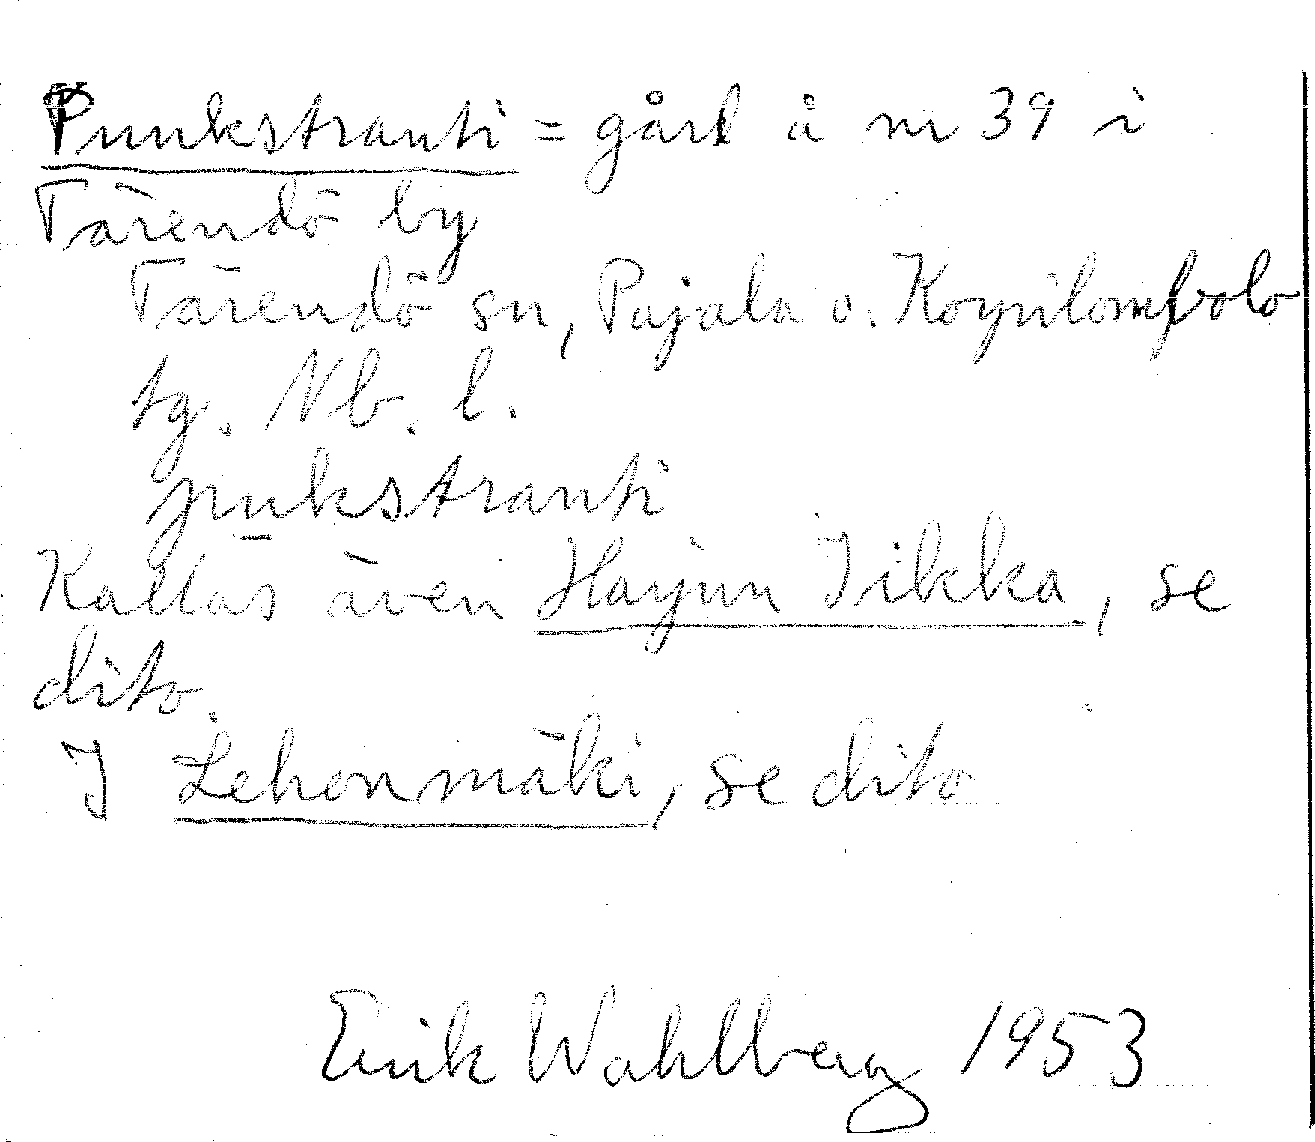 Puukstranti = gård å nr 39 i
Tärendö by
Tärendö sn, Pajala o. Korpilombolo
tg. Nb. l.
pu̱kstranti
Kallas även Harjun Iikka, se
dito.
I Lehonmäki, se dito
Erik Wahlberg 1953